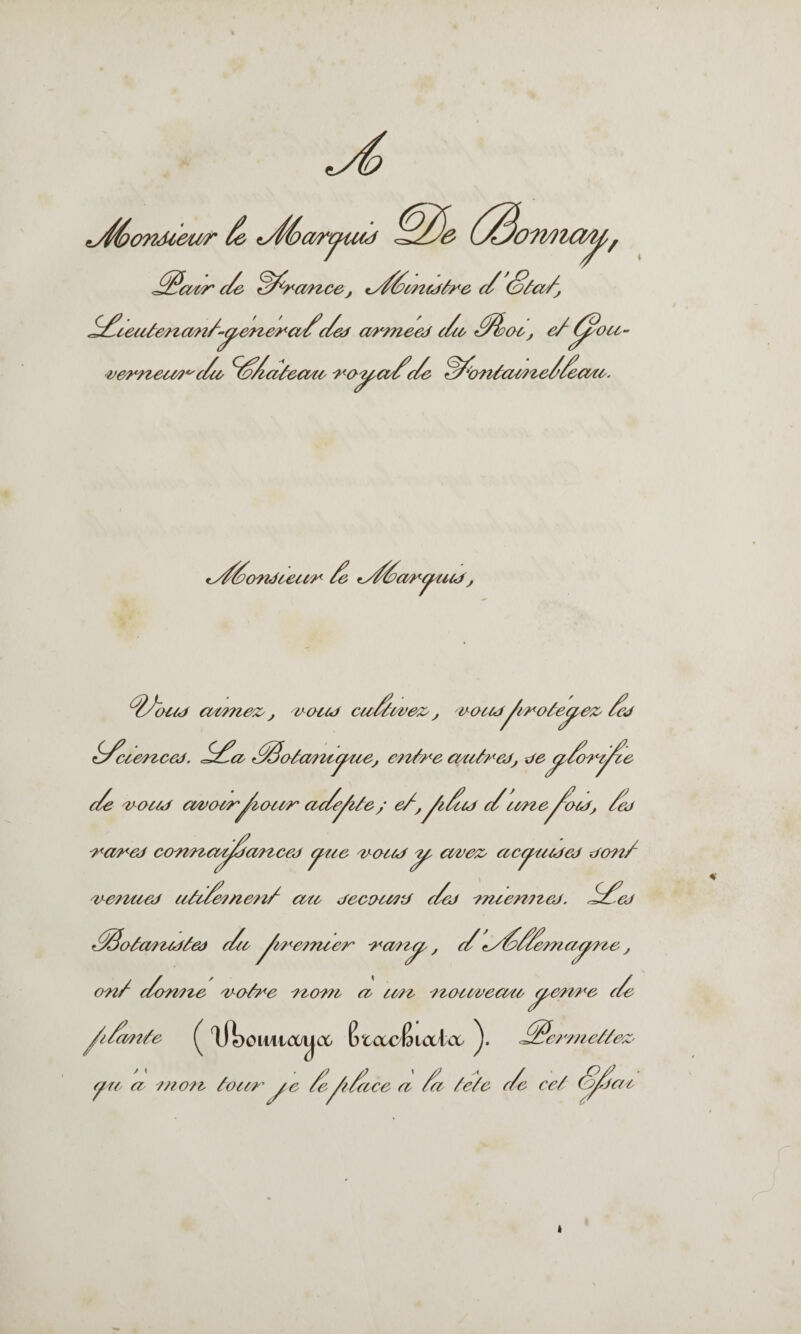 A
Monsieur le Marquis De Bonnay,
Pair de France, Ministre d'Etat,
Lieutenant-général des armées du Roi, et Gou-
verneur du Château royal de Fontainebleau.
Monsieur le Marquis,
Vous aimez, vous cultivez, vous protegez les
Sciences. La Botanique, entre autres, se glorifie
de vous avoir pour adepte; et, plus d'une fois, les
rares connaissances que vous y avez acquises sont
venues utilement au secours des miennes. Les
Botanistes du premier rang, d'Allemagne,
ont donné votre nom à un nouveau genre de
plante (Bonnaya Brachiata). Permettez
qu'à mon tour je le place à la tête de cet Essai